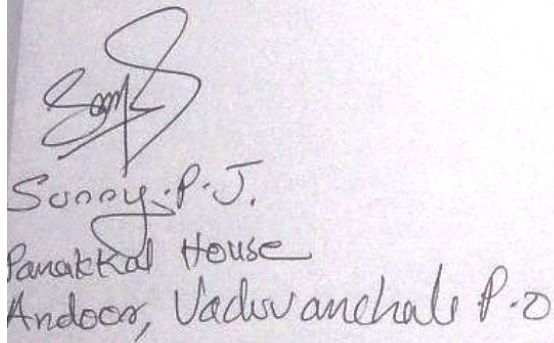 Sunny.P.J.
Panakkal House
Andoor, Vaduvanchal P.O